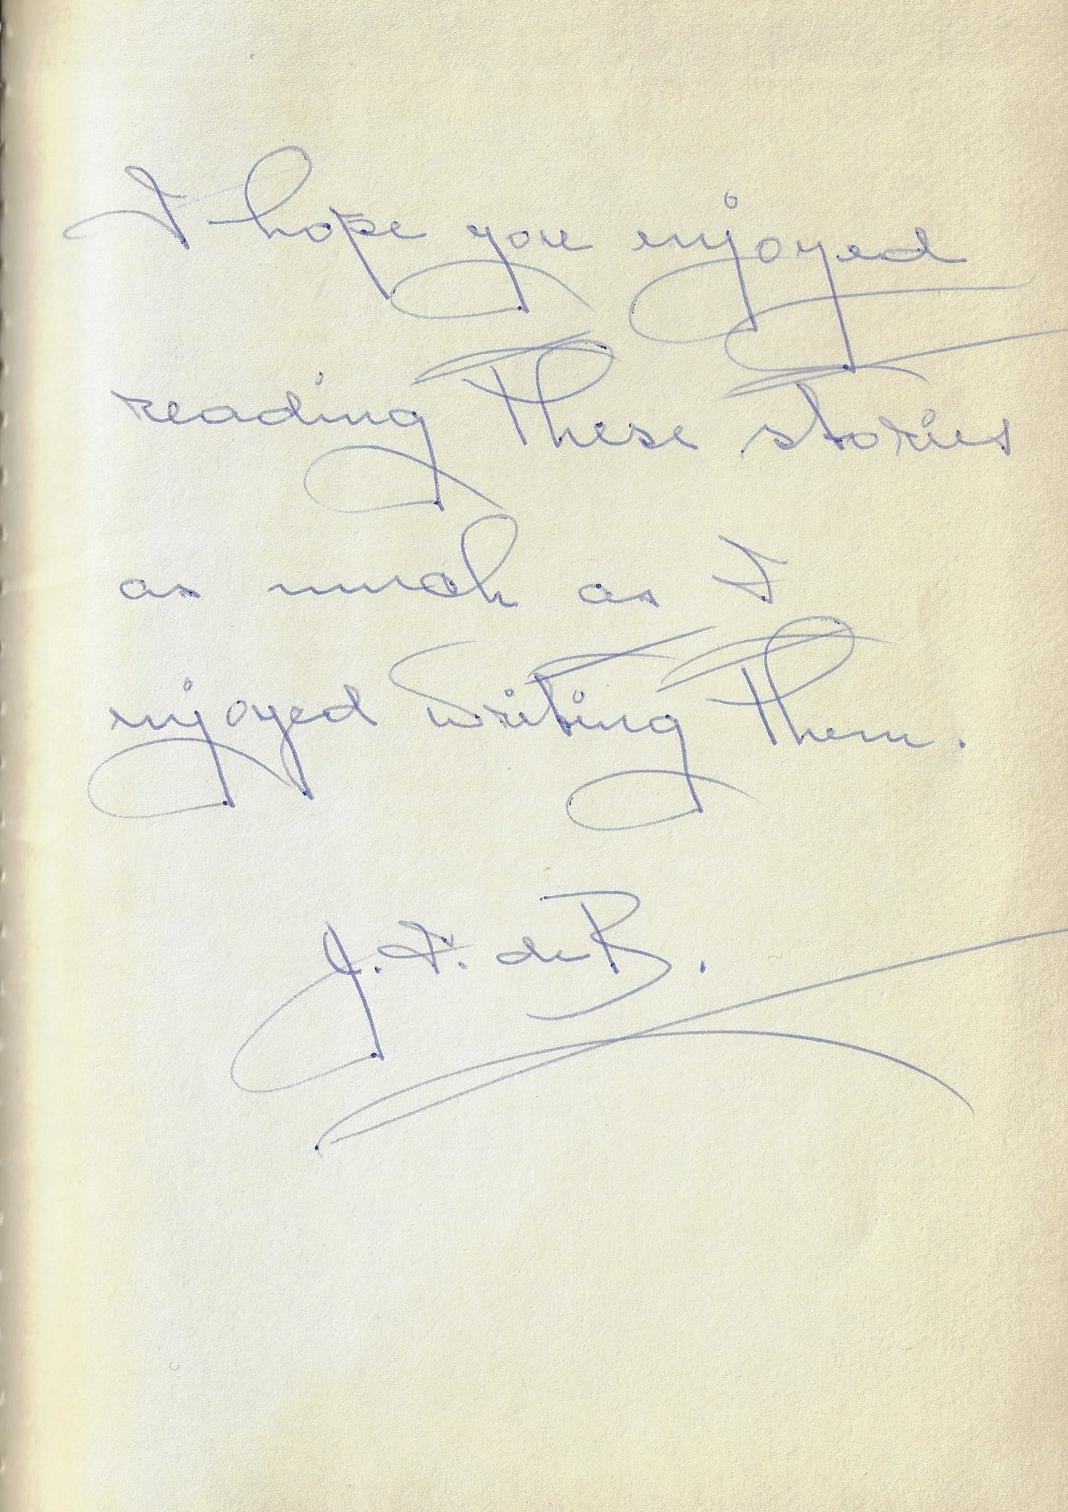 I hope you enjoyed
reading these stories
as much as I
enjoyed writing them.
J. F. de B.